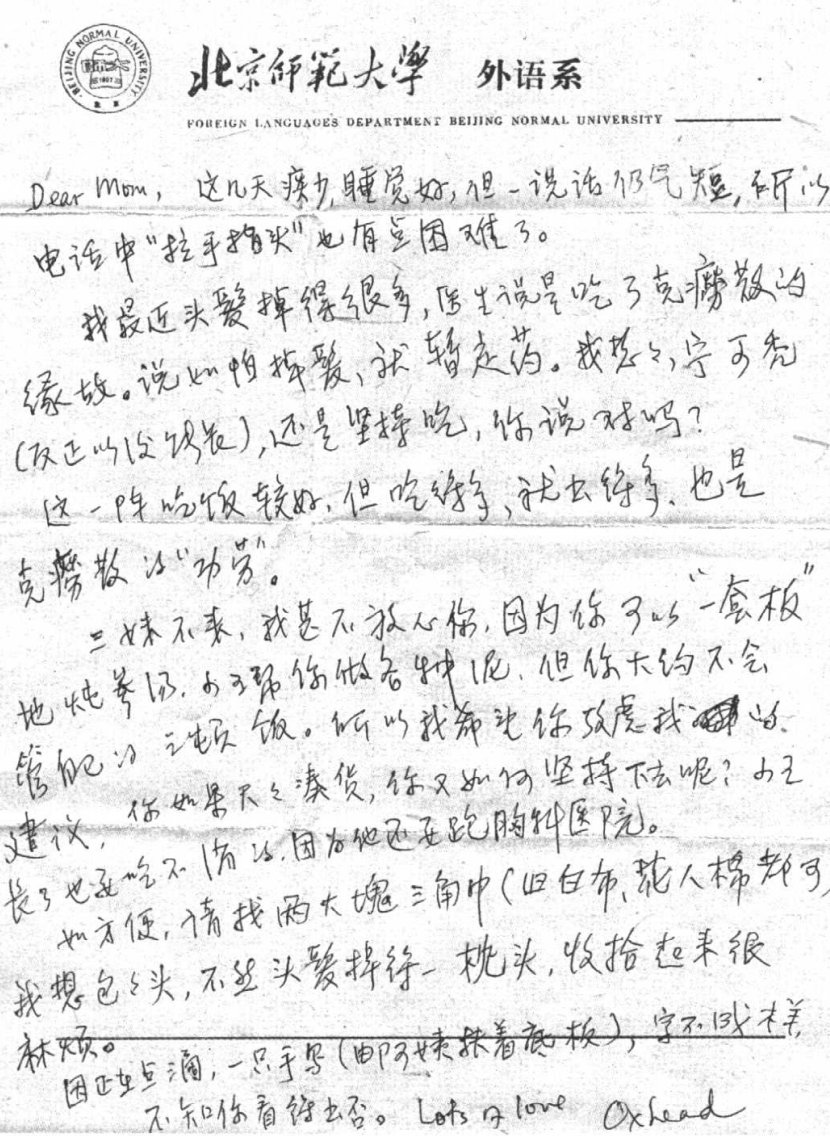 BEIJING NORMAL UNIVERSITY
1902
北京师範大学 外语系
FOREIGN LANGUAGES DEPARTMENT BEIJING NORMAL UNIVERSITY
Dear Mom, 这几天痰少,睡觉好,但一说话仍气短,所以
电话中“拉手指头”也有点困难了。
我最近头发掉得很多,医生说是吃了克癆散的
缘故。说如怕掉发,就暂停药。我想々,宁可秃
(反正以后能长),还是坚持吃,你说对吗?
这一阵吃饭较好,但吃得多,就出得多,也是
克癆散的“功劳”。
二妹不来,我甚不放心你,因为你可以“一套板”
地炖参汤,小王帮你做各种泥,但你大约不会
管自己的三顿饭。所以我希望你考虑我的
建议,你如果天々凑货,你又如何坚持下去呢?小王
长了也要吃不消的,因为他还要跑胸科医院。
如方便,请找两大块三角巾(旧白布、花人棉都可),
我想包々头,不然头发掉得一枕头,收拾起来很
麻烦。
因正在点滴,一只手写(由阿姨扶着底板),字不成样,
不知你看得出否。 Lots of love Oxhead